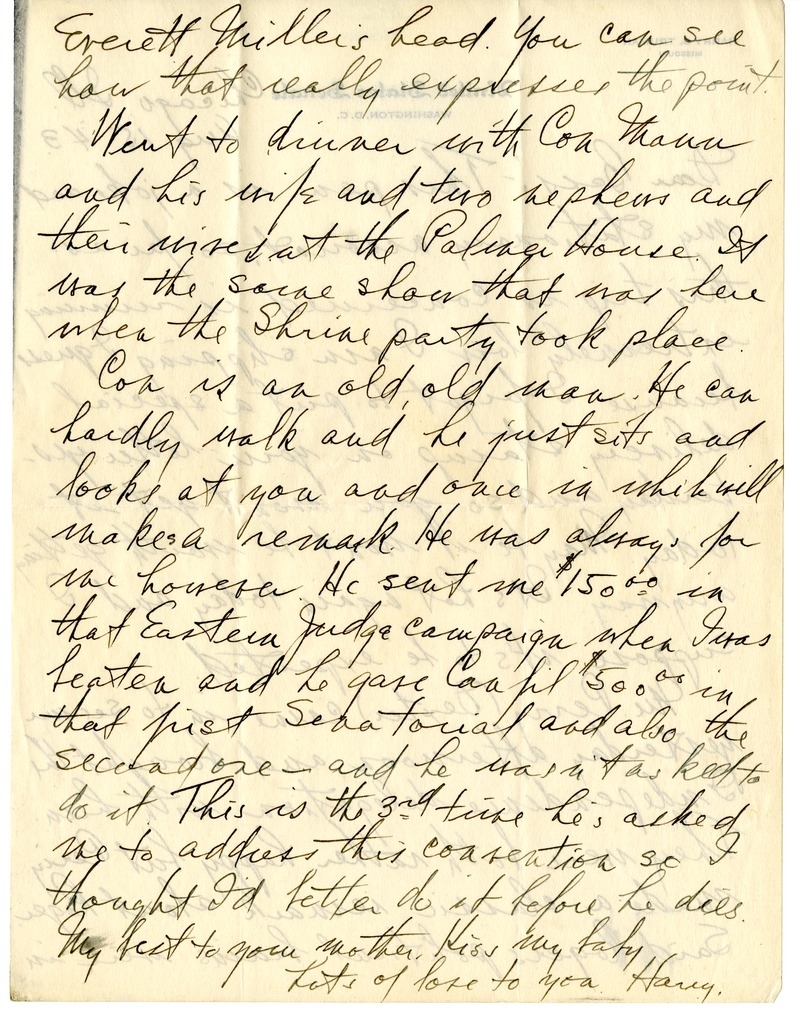 Everett Miller's head. You can see
how that really expresses the point.
Went to dinner with Con Mann
and his wife and two nephews and
their wives at the Palmer House. It
was the same show that was here
when the Shrine party took place.
Con is an old, old man. He can
hardly walk and he just sits and
looks at you and once in while will
makes a remark. He was always for
me however. He sent me $150.00 in
that Eastern Judge campaign when I was
beaten and he gave Canfil $500.00 in
that first Senatorial and also the
second one – and he wasn't asked to
do it. This is the 3rd time he's asked
me to address this convention so I
thought I'd better do it before he dies.
My best to your mother, Kiss my baby
Lots of love to you Harry.